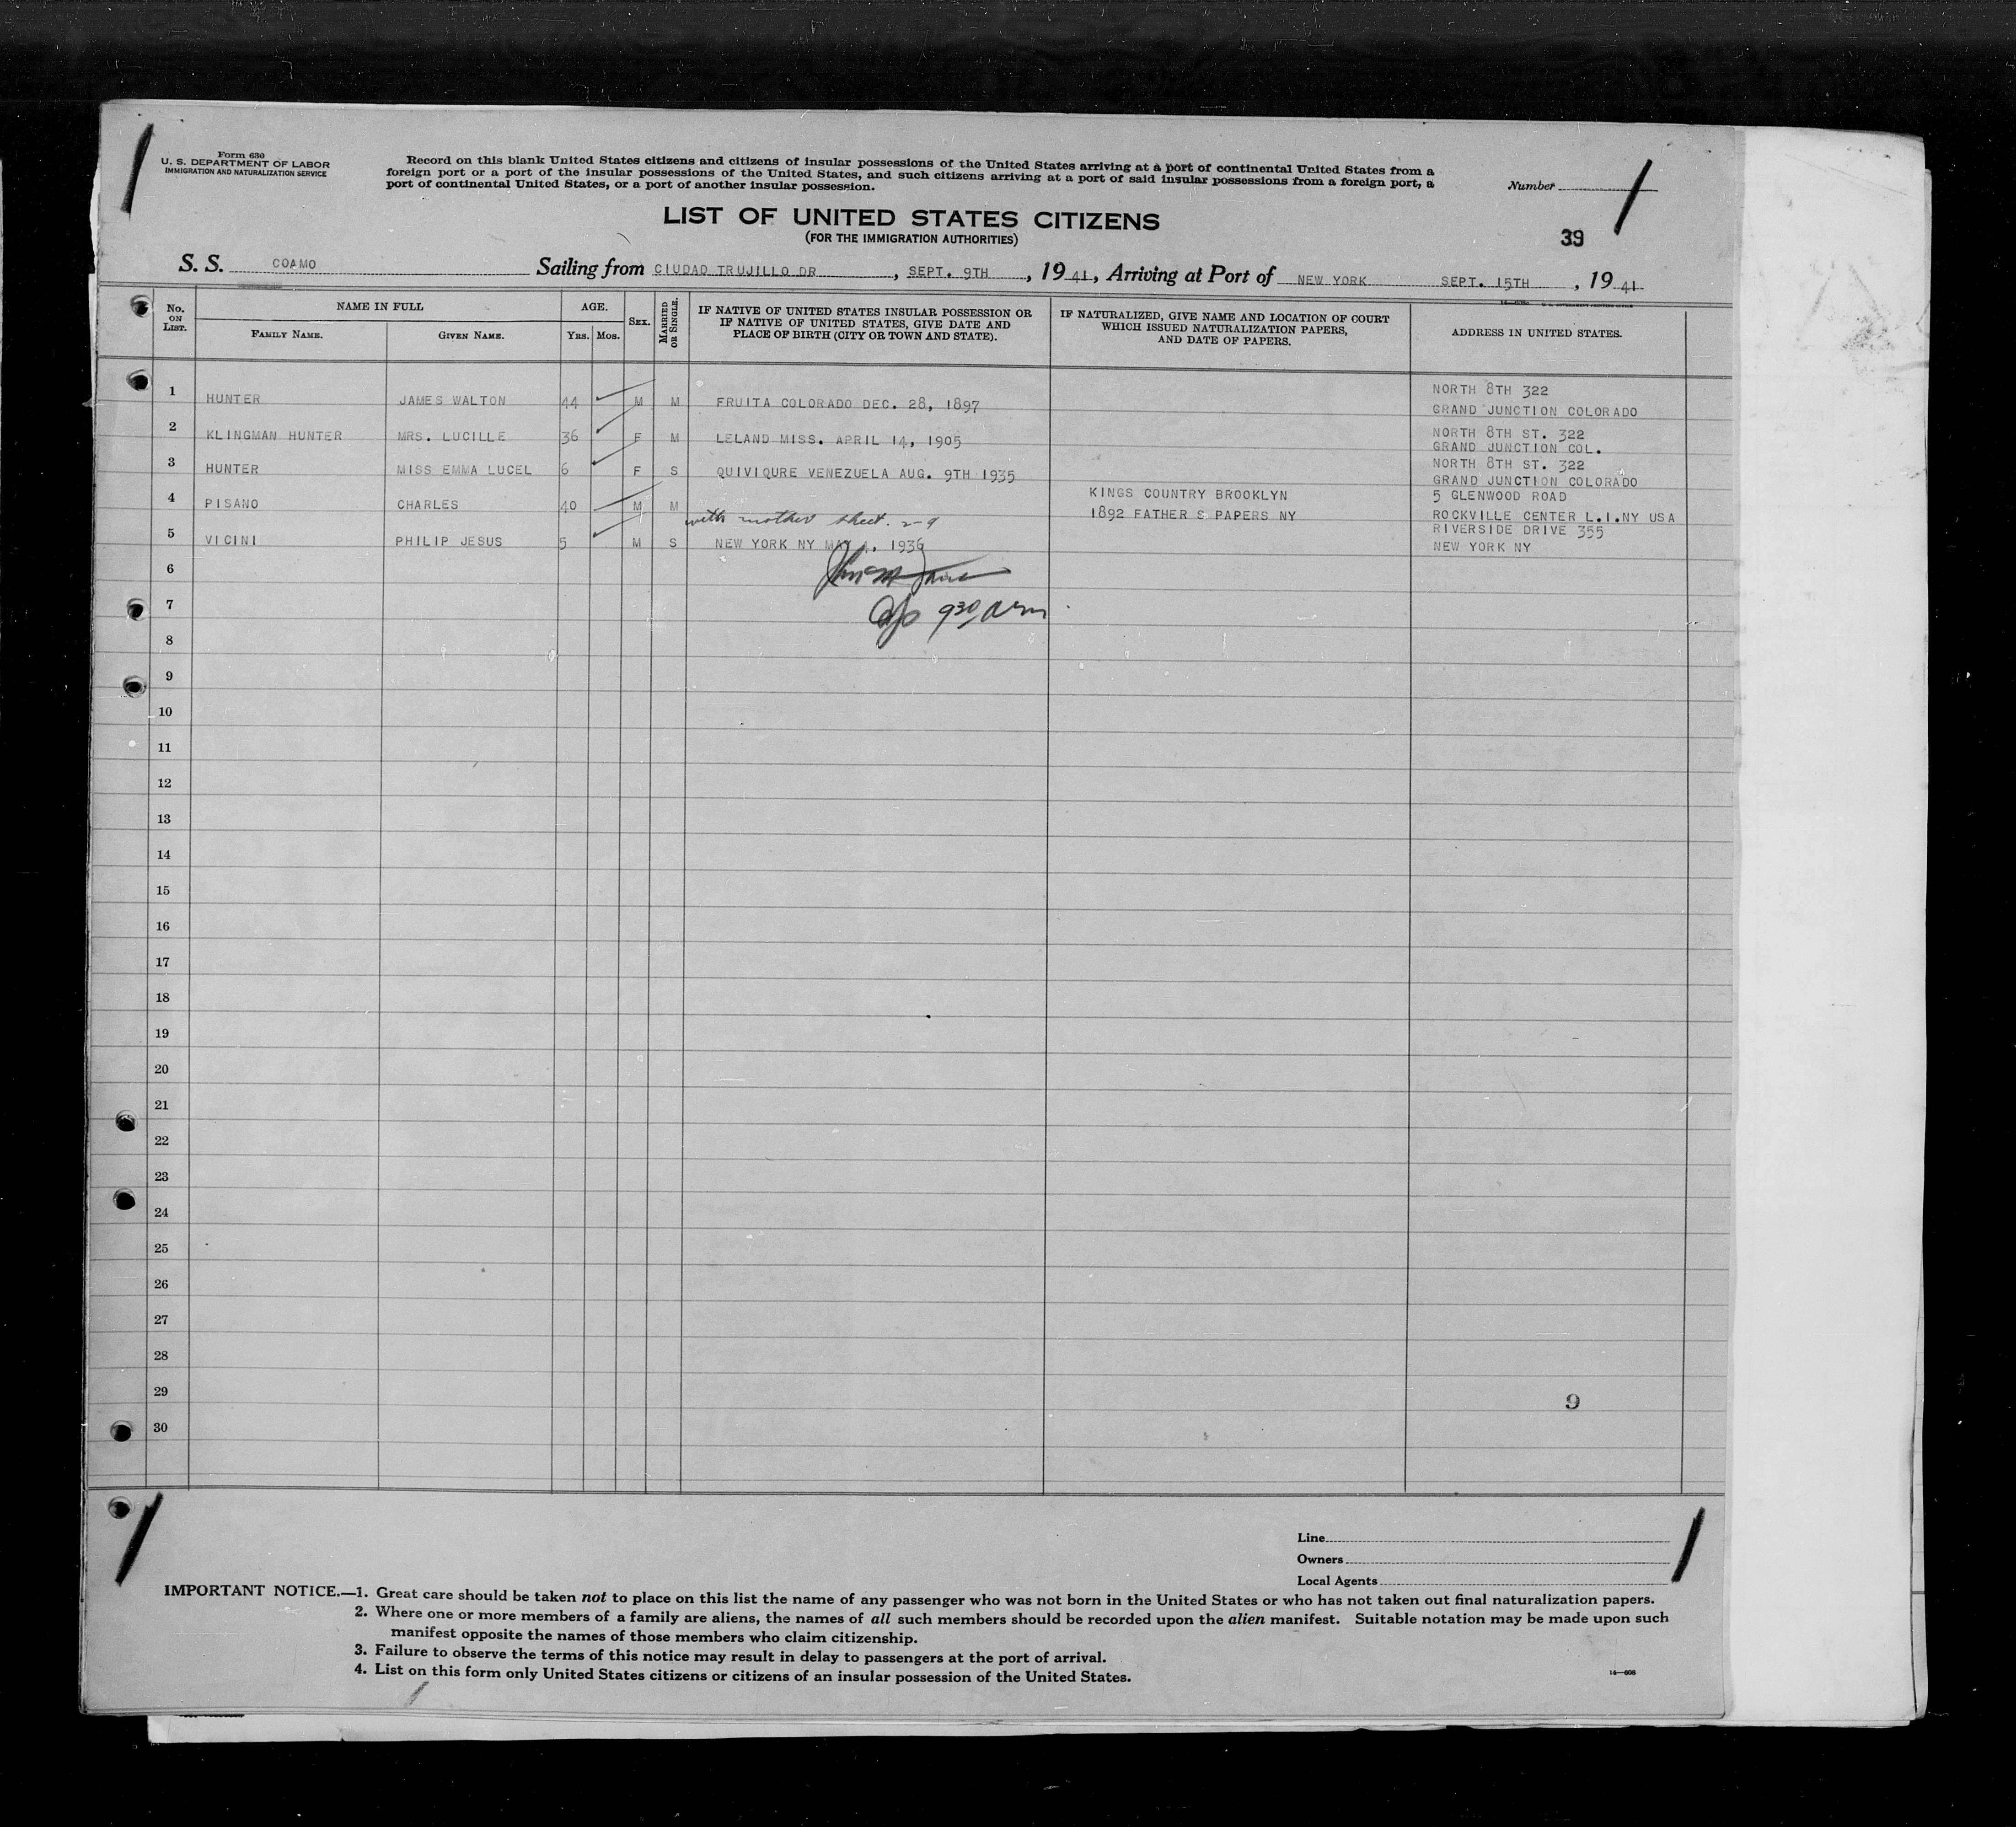 Form 630
U. S. DEPARTMENT OF LABOR
IMMIGRATION AND NATURALIZATION SERVICE
Record on this blank United States citizens and citizens of insular possessions of the United States arriving at a port of continental United States from a
foreign port or a port of the insular possessions of the United States, and such citizens arriving at a port of said insular possessions from a foreign port, a
port of continental United States, or a port of another insular possession.
Number
LIST OF UNITED STATES CITIZENS
(FOR THE IMMIGRATION AUTHORITIES)
39
S. S. COAMO Sailing from CIUDAD TRUJILLO DR, SEPT. 9TH, 19 41, Arriving at Port of NEW YORK SEPT. 15TH, 19 41
No. ON LIST. NAME IN FULL FAMILY NAME. GIVEN NAME. AGE. YRS. MOS. SEX. MARRIED OR SINGLE.
IF NATIVE OF UNITED STATES INSULAR POSSESSION OR
IF NATIVE OF UNITED STATES, GIVE DATE AND
PLACE OF BIRTH (CITY OR TOWN AND STATE).
IF NATURALIZED, GIVE NAME AND LOCATION OF COURT
WHICH ISSUED NATURALIZATION PAPERS,
AND DATE OF PAPERS.
ADDRESS IN UNITED STATES.
1 HUNTER JAMES WALTON 44 M M FRUITA COLORADO DEC. 28, 1897 NORTH 8TH 322
GRAND JUNCTION COLORADO
2 KLINGMAN HUNTER MRS. LUCILLE 36 F M LELAND MISS. APRIL 14, 1905 NORTH 8TH ST. 322
GRAND JUNCTION COL.
3 HUNTER MISS EMMA LUCEL 6 F S QUIVIQURE VENEZUELA AUG. 9TH 1935 NORTH 8TH ST. 322
GRAND JUNCTION COLORADO
4 PISANO CHARLES 40 M M KINGS COUNTRY BROOKLYN 5 GLENWOOD ROAD
1892 FATHER S PAPERS NY ROCKVILLE CENTER L.I.NY USA
with mother sheet. 2-9
5 VICINI PHILIP JESUS 5 M S NEW YORK NY MAY 1936 RIVERSIDE DRIVE 355
NEW YORK NY
6
7 9 30 am
8
9
10
11
12
13
14
15
16
17
18
19
20
21
22
23
24
25
26
27
28
29
9
30
Line
Owners
Local Agents
IMPORTANT NOTICE.—1. Great care should be taken not to place on this list the name of any passenger who was not born in the United States or who has not taken out final naturalization papers.
2. Where one or more members of a family are aliens, the names of all such members should be recorded upon the alien manifest. Suitable notation may be made upon such
manifest opposite the names of those members who claim citizenship.
3. Failure to observe the terms of this notice may result in delay to passengers at the port of arrival.
4. List on this form only United States citizens or citizens of an insular possession of the United States.
14—608